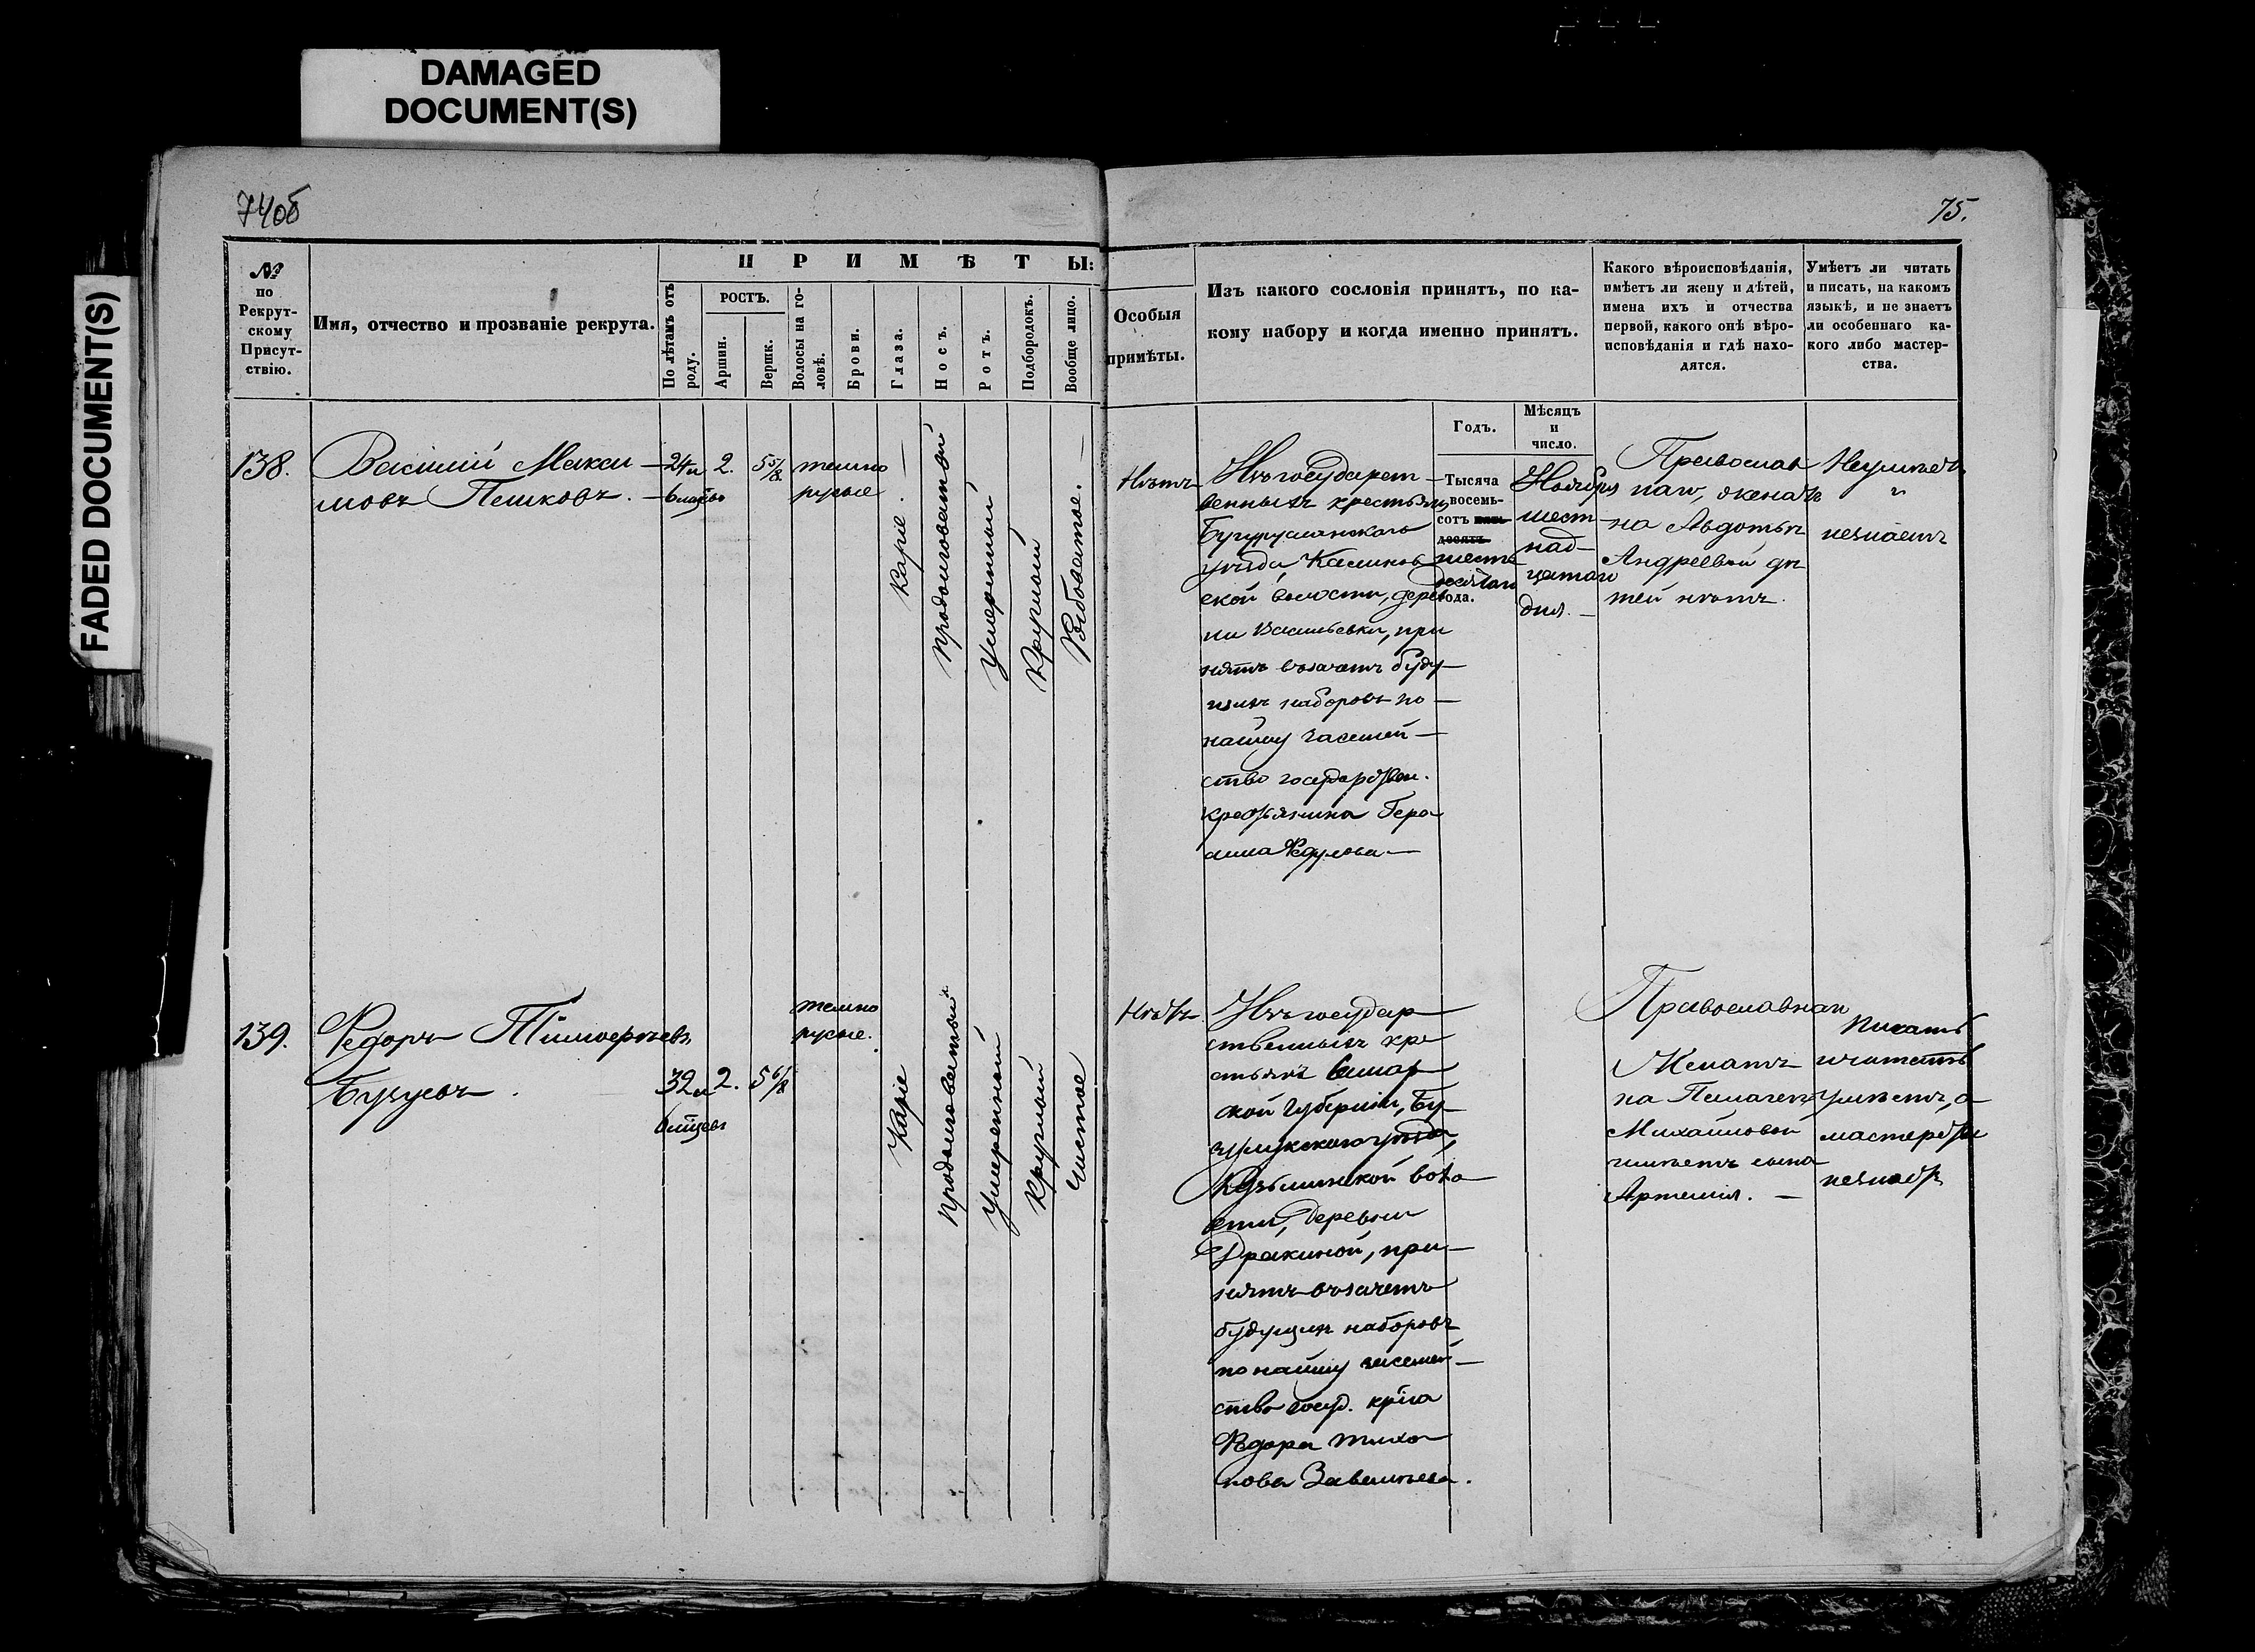 DAMAGED
DOCUMENT(S)
FADED DOCUMENT(S)
74об
75.
№
по
Рекрут-
скому
Присут-
ствію.
Имя, отчество и прозваніе рекрута.
ПРИМѢТЫ:
По лѣтамъ отъ
роду.
РОСТЪ.
Аршин.
Вершк.
Волосы на го-
ловѣ.
Брови.
Глаза.
Носъ.
Ротъ.
Подбородокъ.
Вообще лицо.
Особыя
примѣты.
Изъ какого сословія принятъ, по ка-
кому набору и когда именно принятъ.
Какого вѣроисповѣданія,
имѣетъ ли жену и дѣтей,
имена ихъ и отчества
первой, какого онѣ вѣро-
исповѣданія и гдѣ нахо-
дятся.
Умѣетъ ли читать
и писать, на какомъ
языкѣ, и не знаетъ
ли особеннаго ка-
кого либо мастер-
ства.
Годъ.
Мѣсяцъ
и
число.
138.
Василий Макси-
мовъ Пешковъ.
24 л
6 мѣсцов
2.
5 5/8
темно
русые
Каріе.
продолговатый
Умеренный
Круглый
Рябоватое.
Нѣтъ
Изъ государст-
венныхъ крестьянъ
Бугурусланскаго
уѣзда,
ской волости, дерев
ни Васильевки, при
нятъ въ зачетъ буду-
щихъ наборовъ по-
найму за семей-
ство государствен.
крестьянина Гера
сима Федулова
Тысяча
восемь-
сотъ пять-
десятъ
шесть
десятаго
года.
Ноября
шест-
над-
цатаго
дня.
Православ
наго, женатъ
на Авдотьѣ
Андреевой дѣ
тей нѣтъ.
Неумѣетъ
и
незнаетъ
139.
Федоръ Тимофеевъ
32 л
2.
5 6/8
темно
русые.
Каріе
продолговатый
Умеренный
Круглый
Чистое
Нѣтъ
Изъ государ
ственныхъ кре
стьянъ Самар
ской Губерніи, Бу-
зулукскаго уѣзда,
воло
сти, деревни
при-
нятъ въ зачетъ
будущихъ наборовъ
по найму за семей-
ство госуд. кр-на
Федора Тихо
нова
Православнаго
Женатъ
на Пелагеѣ
Михайловой
имѣетъ сына
Артемія.
Писать
и читать
умѣетъ, а
мастерства
незнаетъ